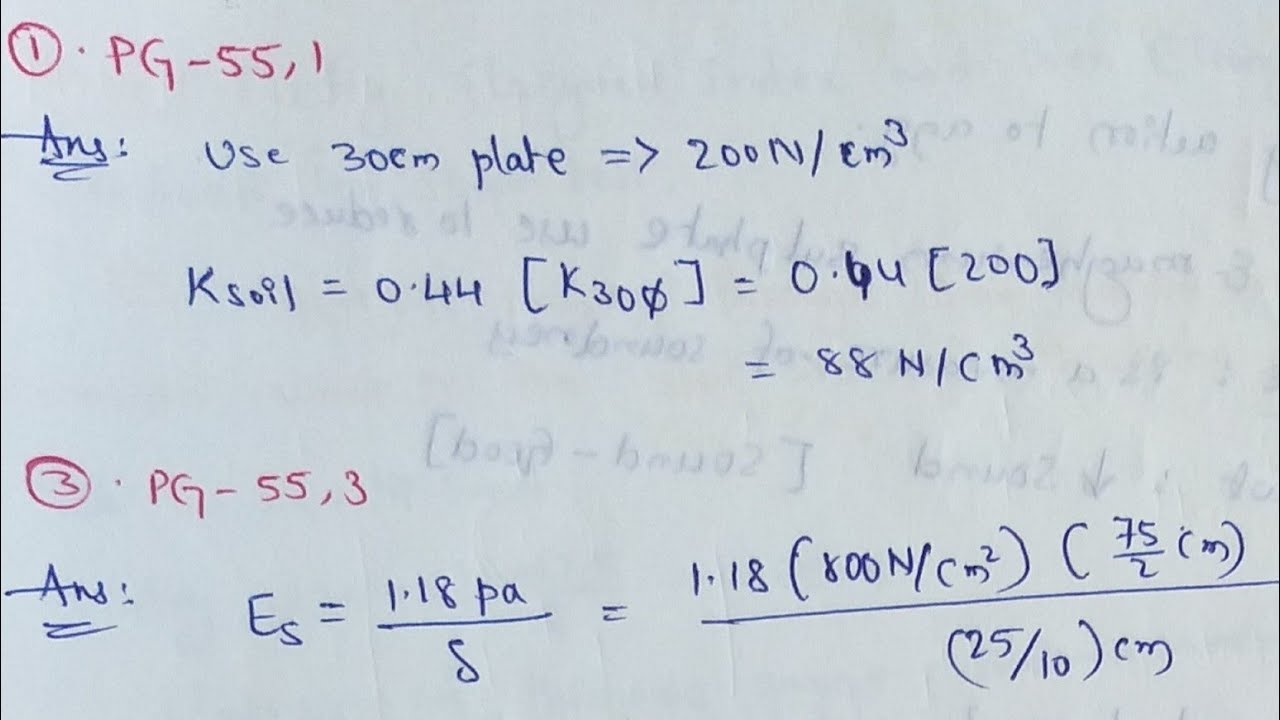 ① · PG-55,1
Ans: Use 30cm plate => 200N/cm³
Ksoil = 0.44 [K30φ] = 0.44 [200]
= 88 N/cm³
③ · PG-55,3
Ans: Es = 1.18 pa / δ = 1.18 (800N/cm²) (75/2 cm) / (25/10) cm